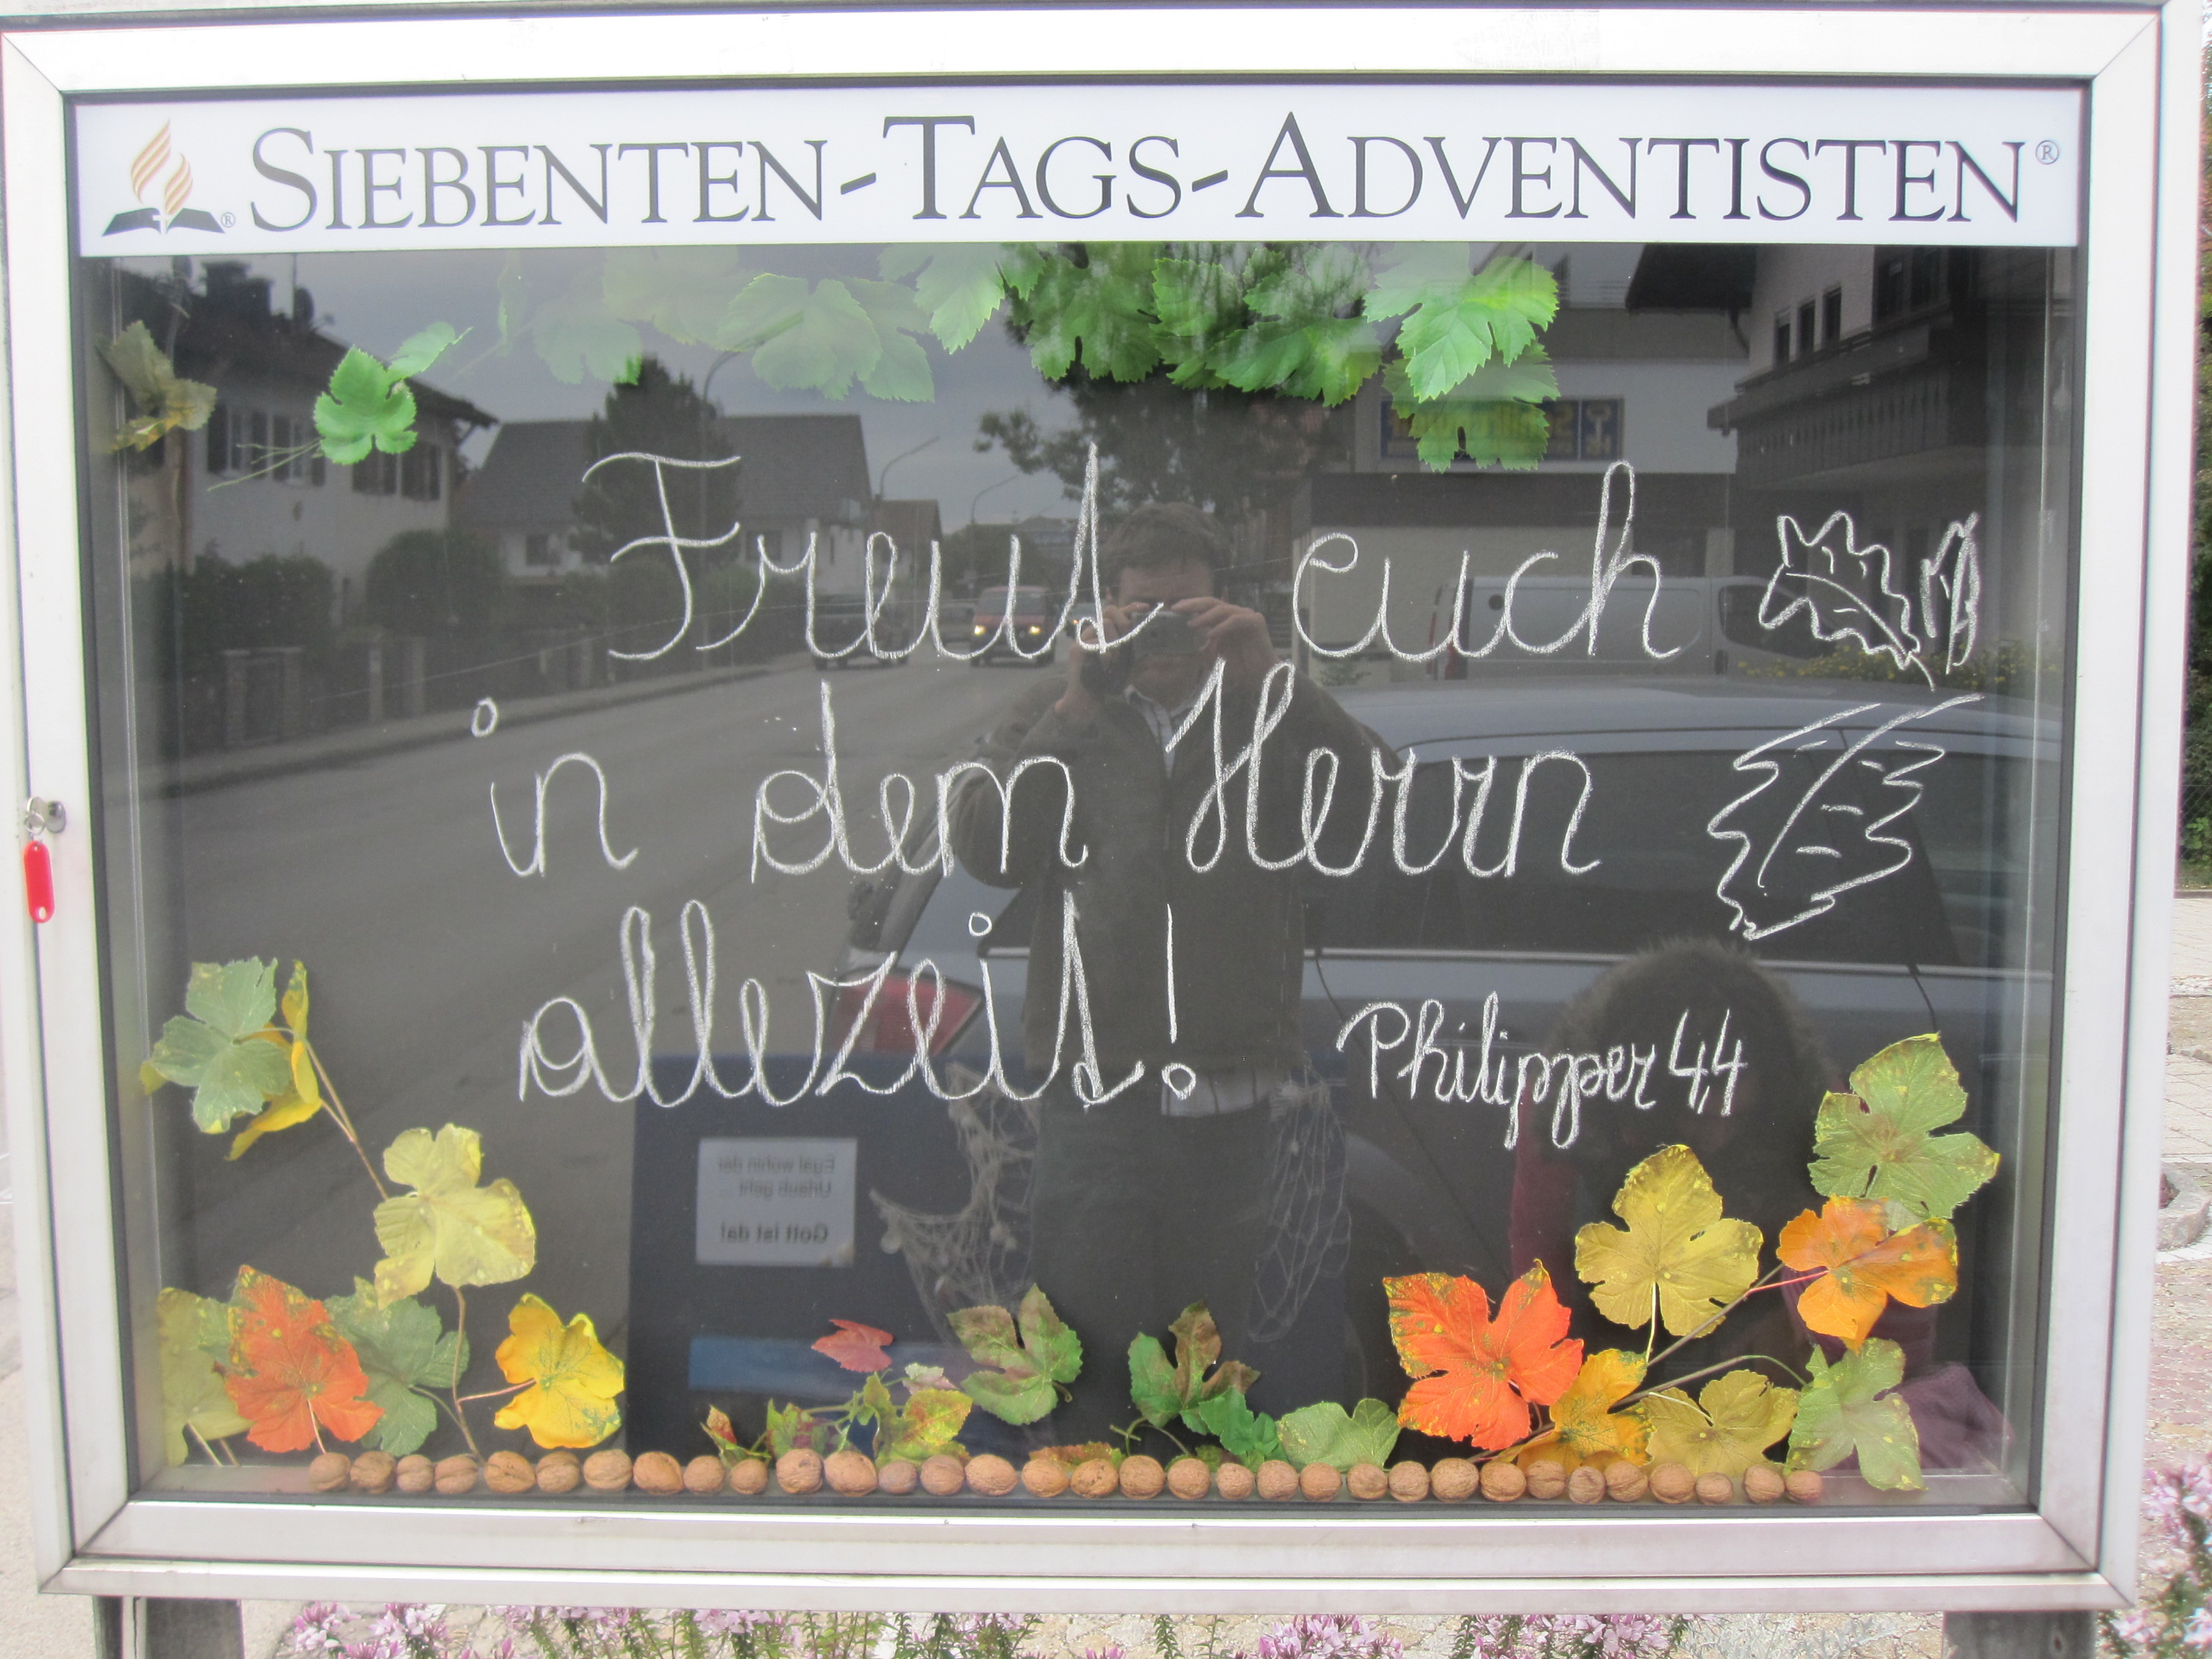 SIEBENTEN-TAGS-ADVENTISTEN®
Freut euch
in dem Herrn
allezeit!
Philipper 4,4
Egal wohin der
Urlaub geht
Gott ist da!